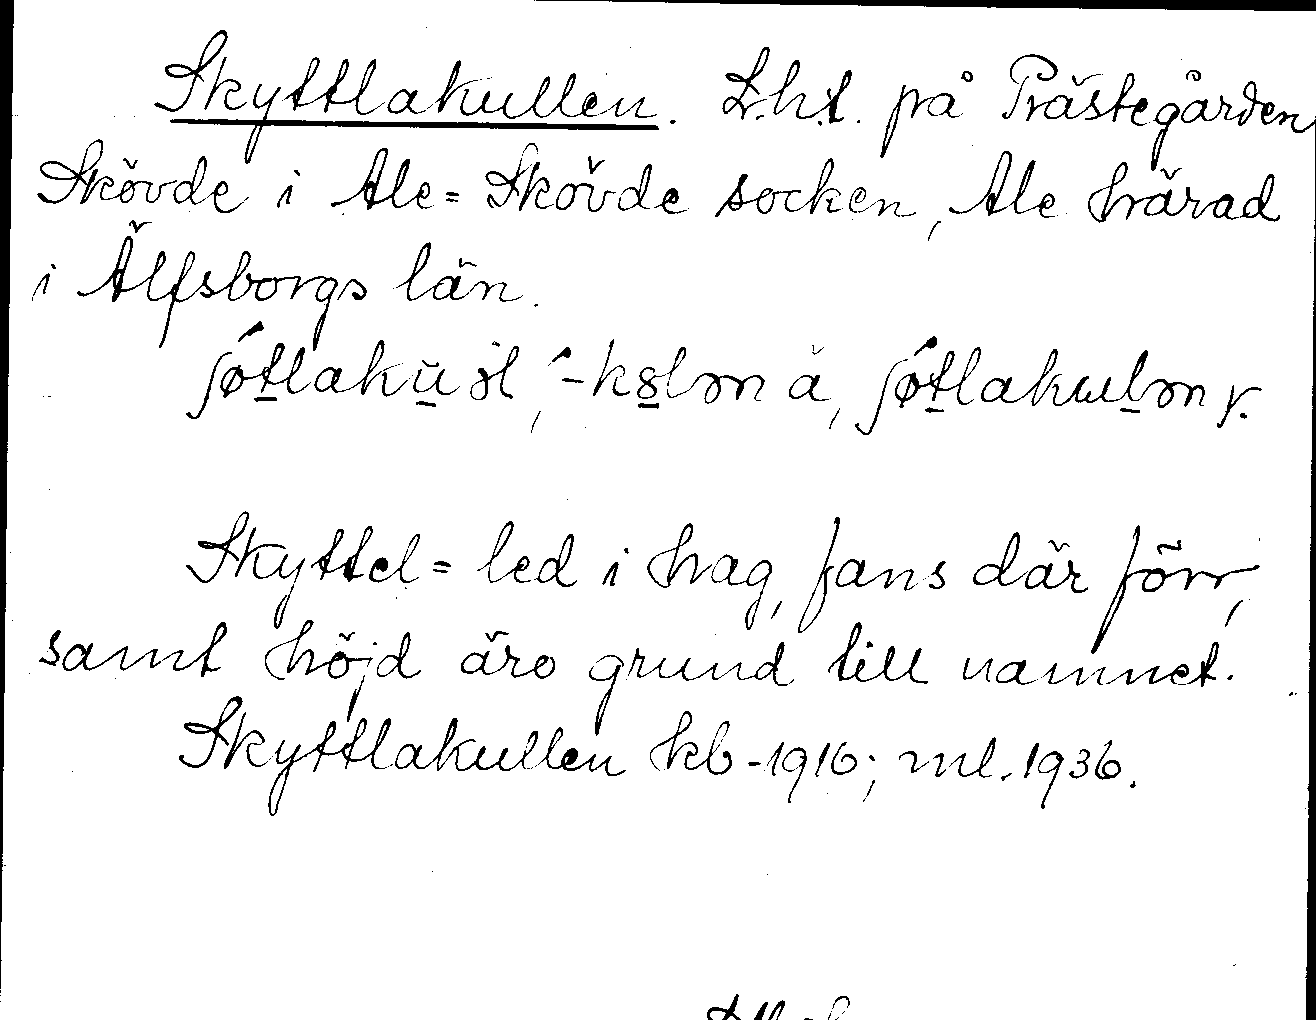 Skyttlakullen. L.h.t. på Prästegården
Skövde i Ale=Skövde socken, Ale härad
i Älfsborgs län.
Skyttel = led i hag, fans där förr,
samt höjd äro grund till namnet.
Skyttlakullen kb-1916; ml.1936.